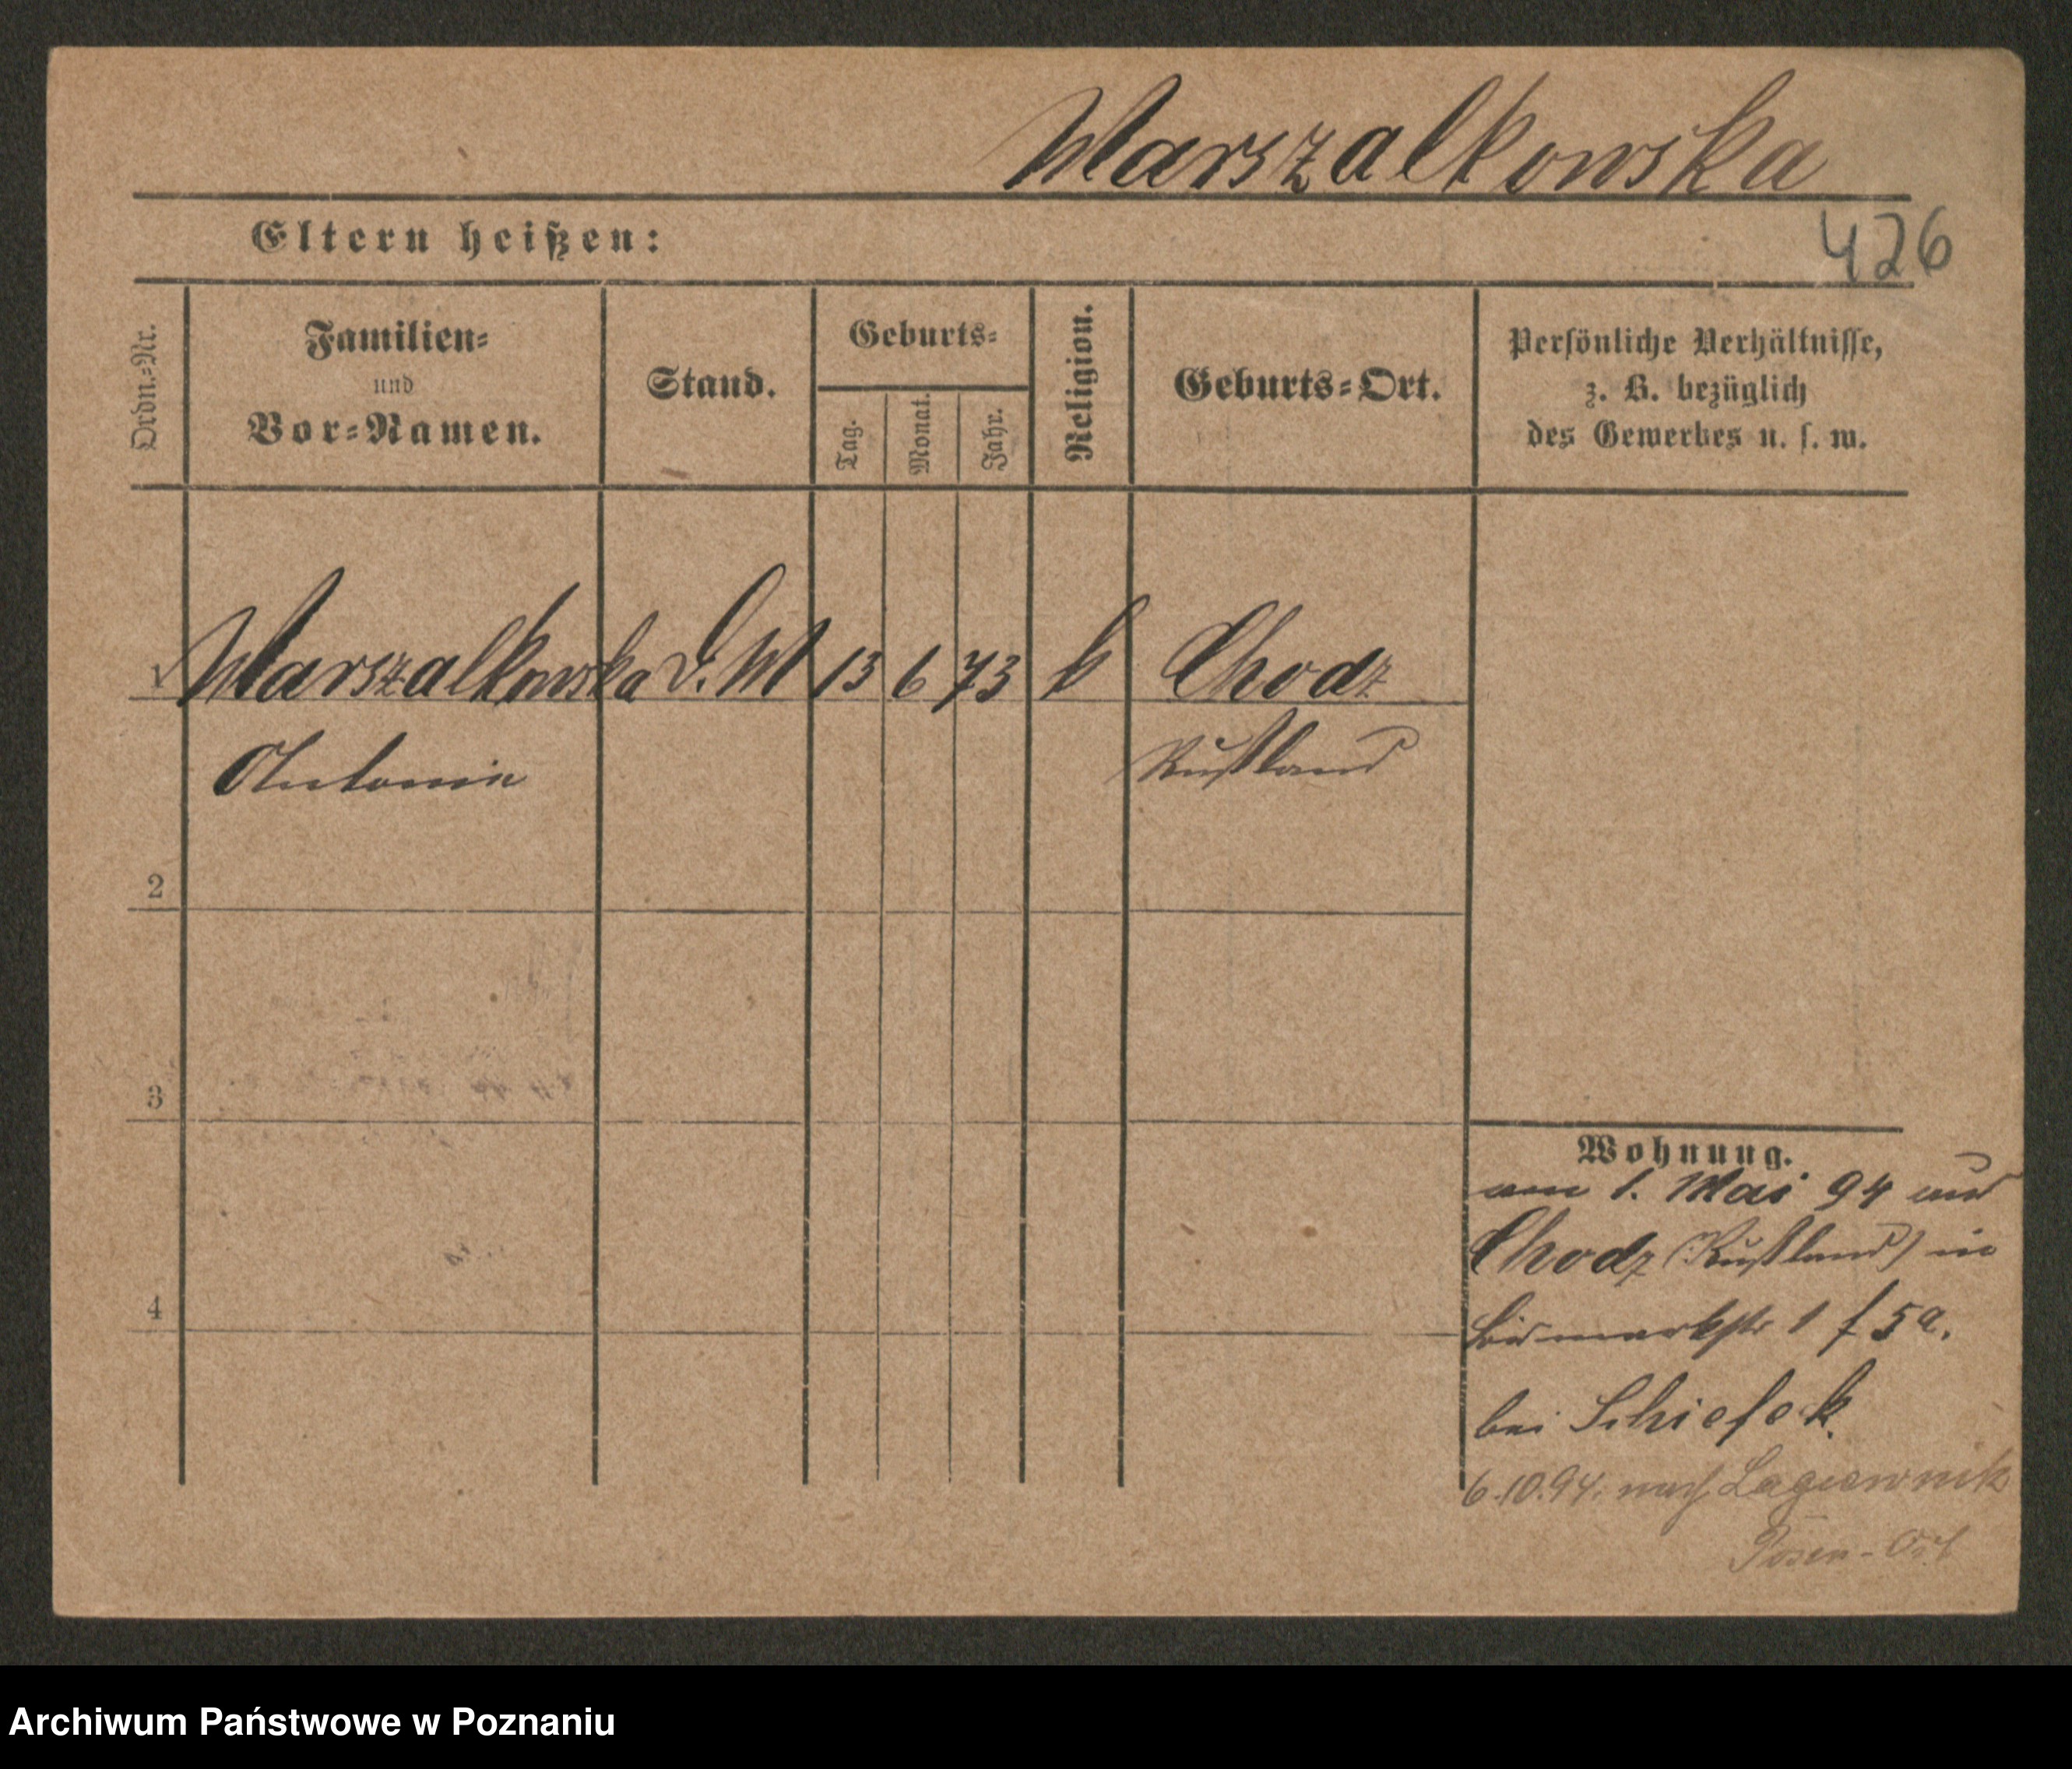 Marszalkowska
426
Eltern heißen:
Ordn.-Nr.
Familien-
und
Vor-Namen.
Stand.
Geburts-
Tag.
Monat.
Jahr.
Religion.
Geburts-Ort.
Persönliche Verhältnisse,
z. B. bezüglich
des Gewerbes u. s. w.
Marszalkowska D. M 13 6 73 k Chodz
Antonie Rußland
2
3
4
Wohnung.
am 1. Mai 94 aus
Chodz (Rußland) in
Bismarkstr 1 f 5a.
bei Schiefek.
6.10.94. nach Lagiewnik
Posen-Ost
Archiwum Państwowe w Poznaniu